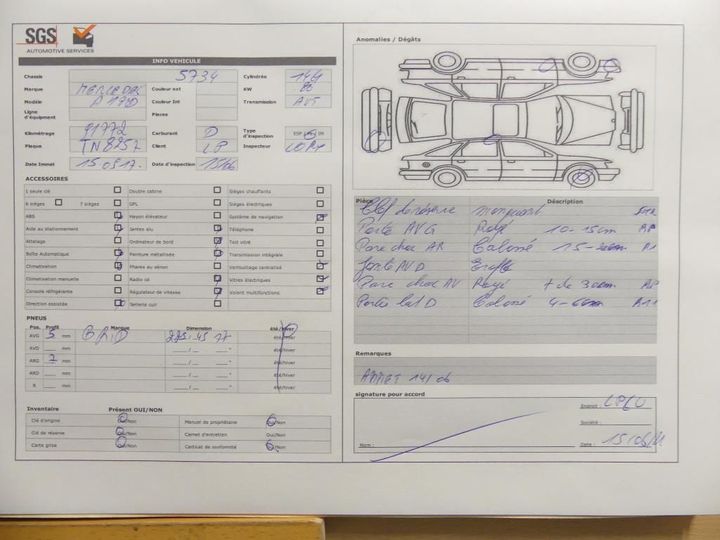 SGS
AUTOMOTIVE SERVICES
INFO VEHICULE
Chassis 5734 Cylindrée
Marque MERCEDES Couleur ext KW
Modèle A 170D Couleur Int Transmission AUT
Ligne d'équipement Places
Kilométrage 91772 Carburant D Type d'inspection
Plaque TN8257 Client LP Inspecteur
Date Immat 15 0317. Date d'inspection 15/06
ACCESSOIRES
1 seule clé Double cabine Sièges chauffants
6 sièges 7 sièges GPL Sièges électriques
ABS Hayon élévateur Système de navigation
Aide au stationnement Jantes alu Téléphone
Attelage Ordinateur de bord Toit vitré
Boîte Automatique Peinture métallisée Transmission intégrale
Climatisation Phares au xénon Verrouillage centralisé
Climatisation manuelle Radio cd Vitres électriques
Console réfrigérante Régulateur de vitesse Volant multifonctions
Direction assistée Tentelle cuir
PNEUS
Pos. Profil Marque Dimension été/hiver
AVG 5 mm 225.45 17 été/hiver
AVD mm été/hiver
ARG 7 mm été/hiver
ARD mm été/hiver
R mm été/hiver
Inventaire Présent OUI/NON
Clé d'origine Oui/Non Manuel de propriétaire Oui/Non
Clé de réserve Oui/Non Carnet d'entretien Oui/Non
Carte grise Oui/Non Certificat de conformité Oui/Non
Anomalies / Dégâts
Pièce Déscription
Clef de réserve manquant
Porte AVG Rayé 10-15cm
Pare choc AR Cabossé 15-20cm
Jante AVD
Pare choc AV Rayé + de 30cm
Porte lat D Cabossé 4-6cm
Remarques
14/06
signature pour accord
Endroit :
Société :
Nom : Date : 15/06/